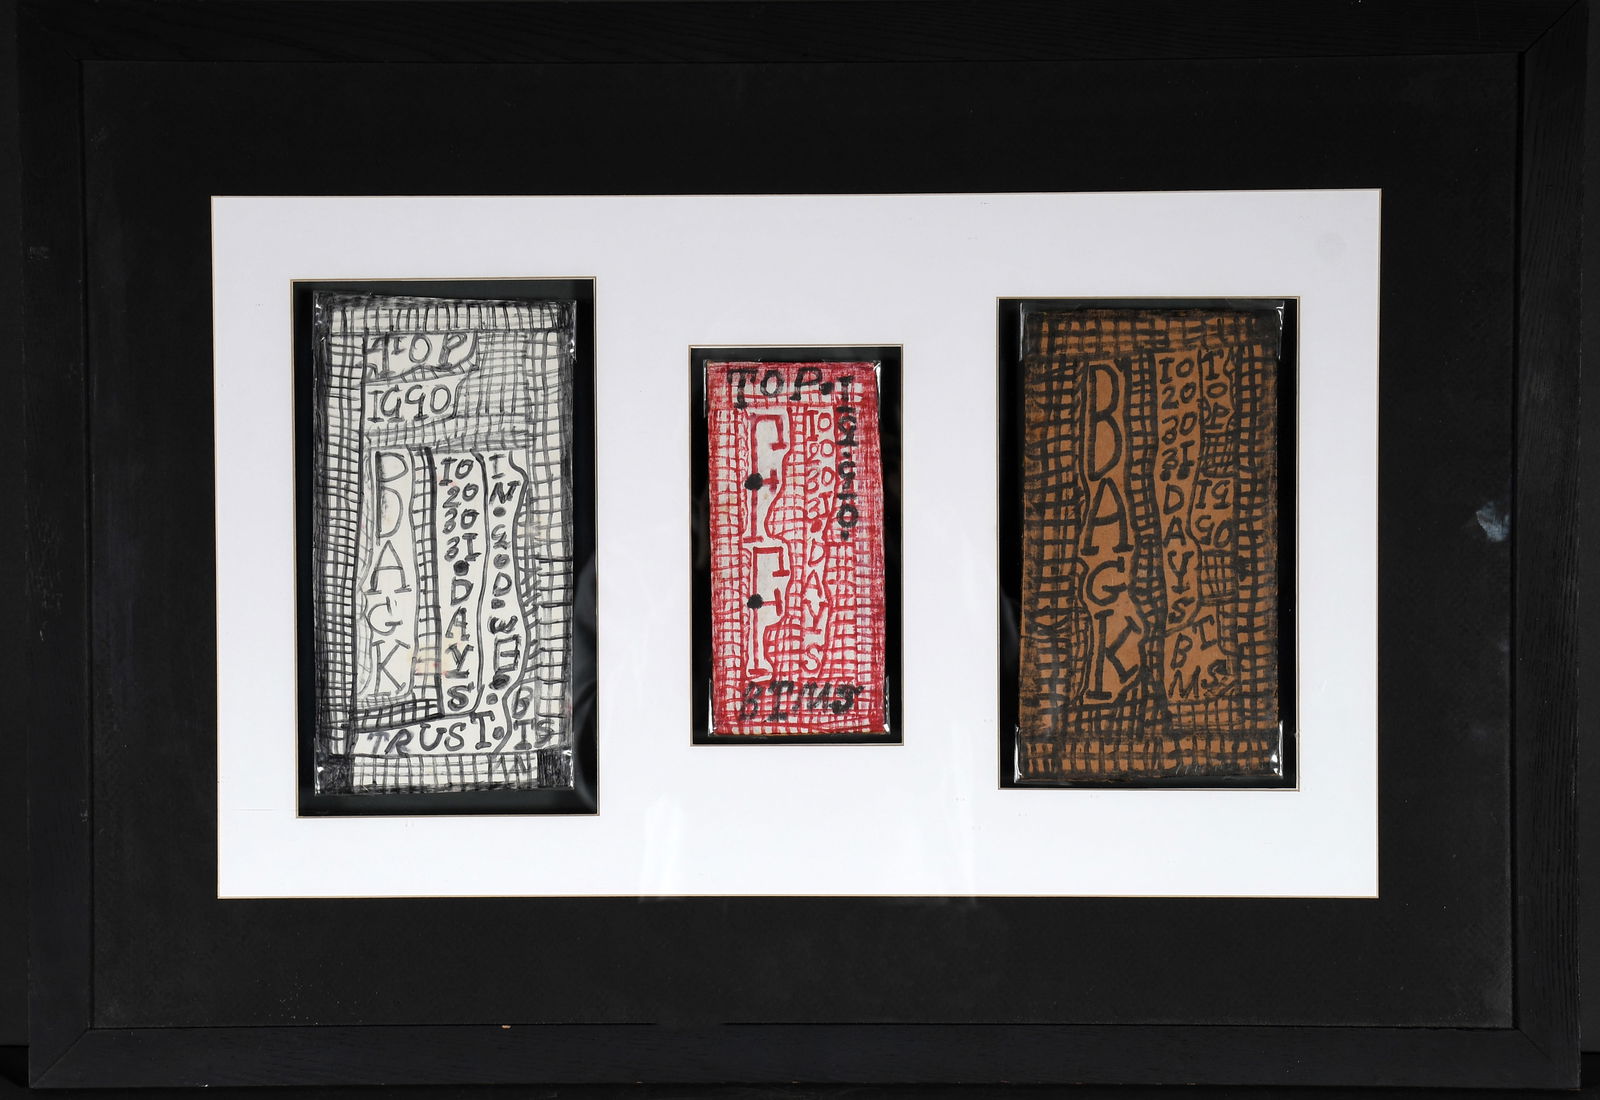 TOP
1990
PDAGK
10
20
30
31.
DAYS
IN.GOD.WE.
TRUST.
BTS
TOP.
1990.
10
20
30
31.
DAYS
BTMS
BAGK
10
20
30
31
DAYS
TOP
19
90
BT
MS